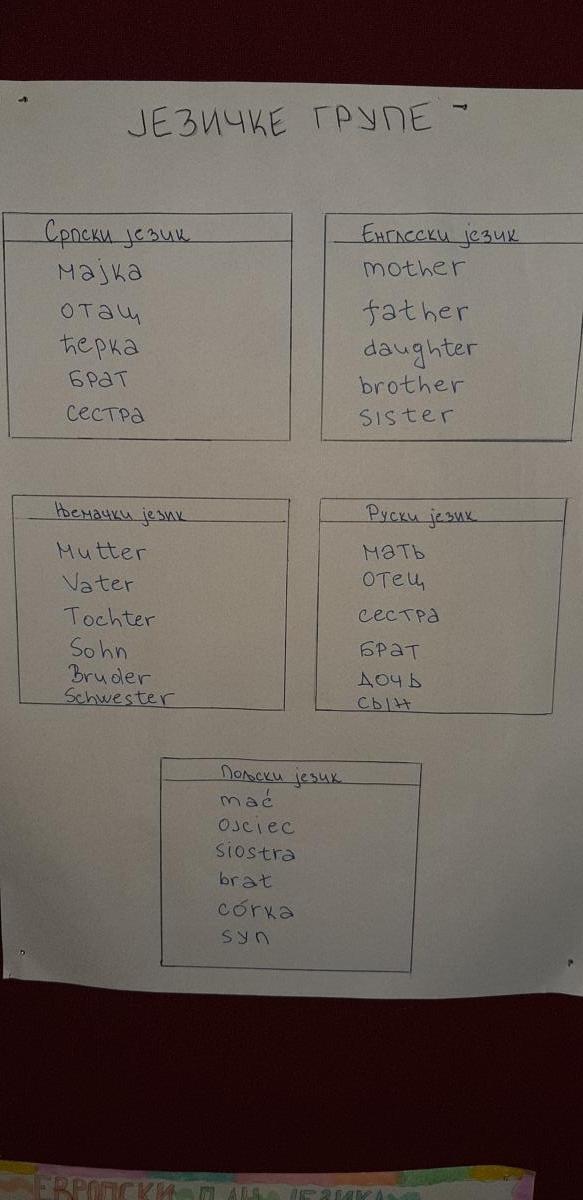 ЈЕЗИЧКЕ ГРУПЕ
Српски језик
мајка
отац
ћерка
брат
сестра
Енглески језик
mother
father
daughter
brother
sister
Њемачки језик
Mutter
Vater
Tochter
Sohn
Bruder
Schwester
Руски језик
мать
отец
сестра
брат
дочь
сын
Пољски језик
mać
ojciec
siostra
brat
córka
syn
ЕВРОПСКИ ДАН ЈЕЗИКА